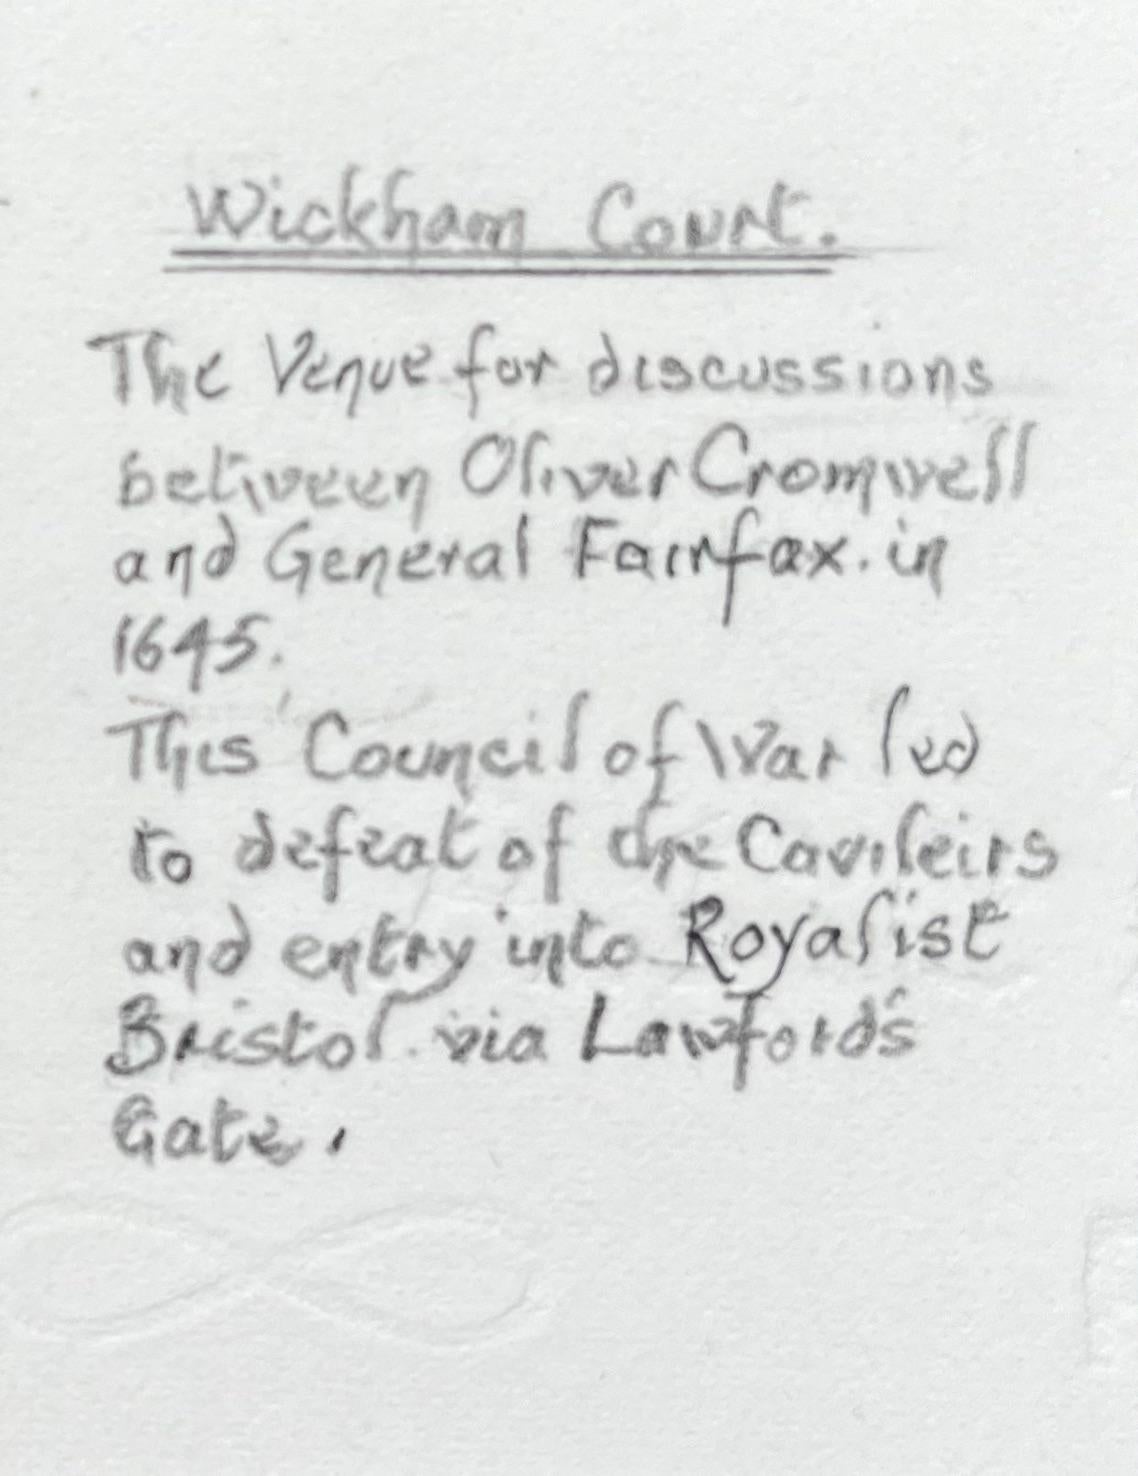 Wickham Court.
The Venue for discussions
between Oliver Cromwell
and General Fairfax. in
1645.
This Council of War led
to defeat of the Cavileirs
and entry into Royalist
Bristol via Lawford's
Gate.